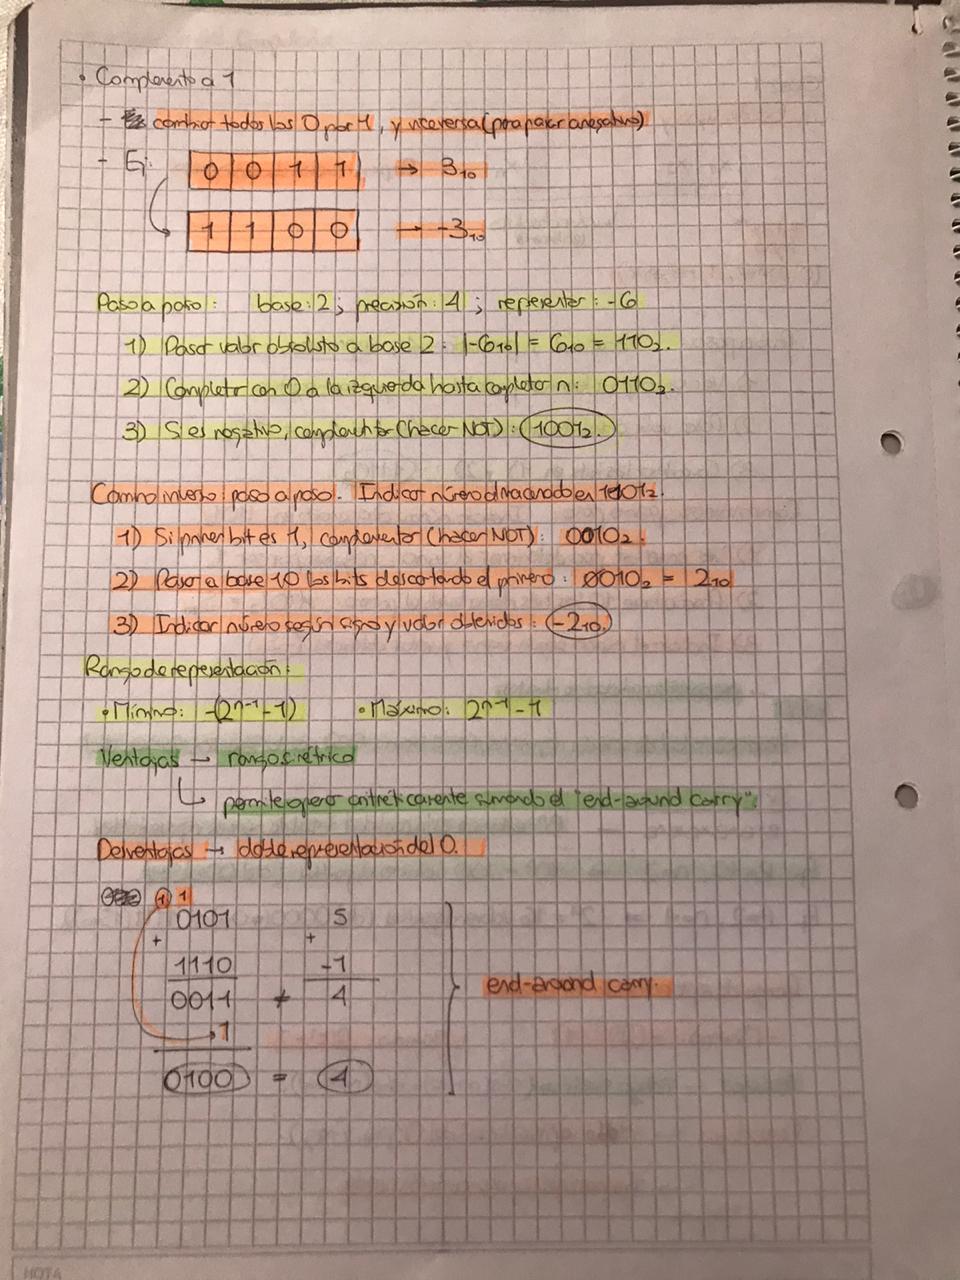 • Complemento a 1
- cambiar todos los 0 por 1, y viceversa (para pasar a negativo)
- Ej:
0 0 1 1 → 3₁₀
1 1 0 0 → -3₁₀
Paso a paso: base: 2; precisión: 4; representar: -6
1) Pasar valor absoluto a base 2: |-6₁₀| = 6₁₀ = 110₂.
2) Completar con 0 a la izquierda hasta completar n: 0110₂.
3) Si es negativo, complementar (hacer NOT): 1001₂.
Camino inverso paso a paso. Indicar número almacenado en 1101₂.
1) Si primer bit es 1, complementar (hacer NOT): 0010₂.
2) Pasar a base 10 los bits descartando el primero: 0010₂ = 2₁₀
3) Indicar número según signo y valor obtenidos: -2₁₀.
Rango de representación:
• Mínimo: -(2ⁿ⁻¹-1) • Máximo: 2ⁿ⁻¹-1
Ventajas → rango simétrico
↳ permite operar aritméticamente sumando el "end-around carry".
Desventajas → doble representación del 0.
1 1
0101 5
+ +
1110 -1
0011 ≠ 4
1
end-around carry.
0100 = 4
NOTA